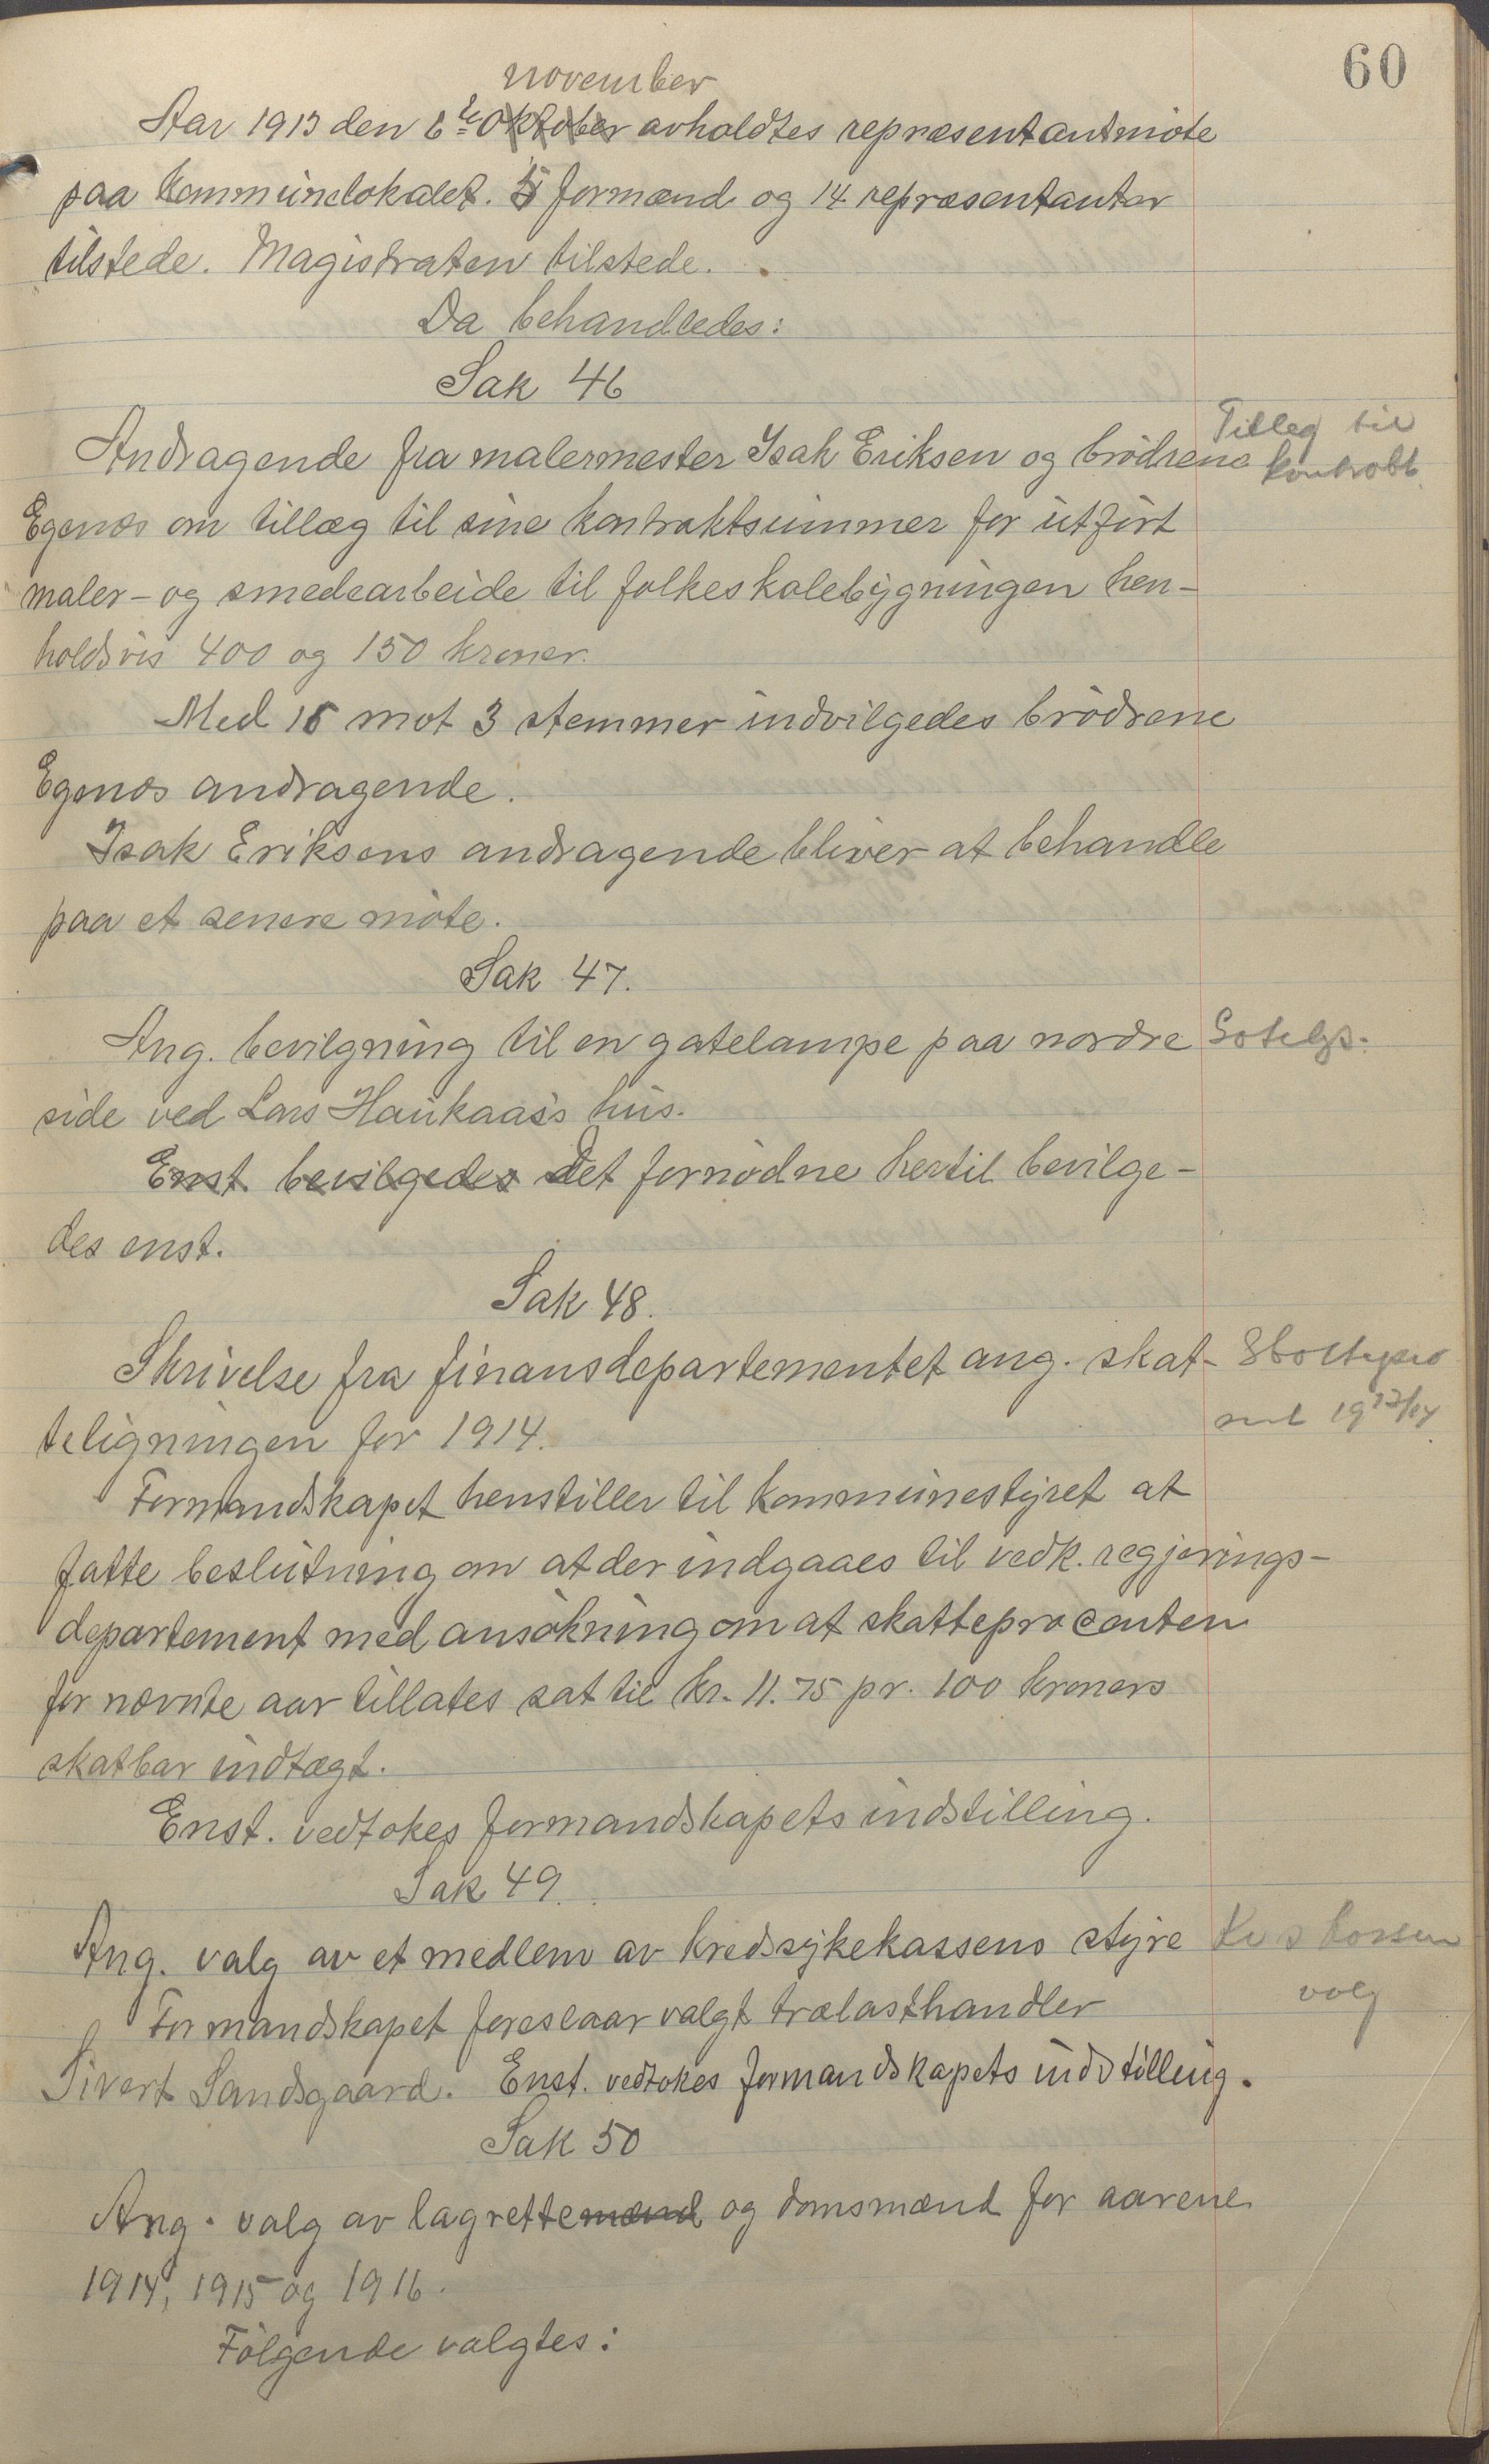 60
november
Aar 1913 den 6te oktober avholdtes repræsentantmöte
paa kommunelokalet. 5 formænd og 14 repræsentanter
tilstede. Magistraten tilstede.
Da behandledes:
Sak 46
Andragende fra malermester Isak Eriksen og brödrene
Tilleg til
kontrakt
Egenæs om tillæg til sine kontraktsummer for utfört
maler- og smedearbeide til folkeskolebygningen hen-
holdsvis 400 og 150 kroner.
Med 15 mot 3 stemmer indvilgedes brödrene
Egenæs andragende.
Isak Eriksens andragende bliver at behandle
paa et senere möte.
Sak 47.
Ang. bevilgning til en gatelampe paa nordre
side ved Lars Haukaas's hus.
Enst. bevilgedes Det fornödne hertil bevilge-
des enst.
Sak 48.
Skrivelse fra finansdepartementet ang. skat-
teligningen for 1914.
19 13/14
Formandskapet henstiller til kommunestyret at
fatte beslutning om at der indgaaes til vedk. regjerings-
departement med ansökning om at skatteprocenten
for nævnte aar tillates sat til kr. 11.75 pr. 100 kroners
skatbar indtægt.
Enst. vedtokes formandskapets indstilling.
Sak 49.
Ang. valg av et medlem av kredssykekassens styre
valg
Formandskapet foreslaar valgt trælasthandler
Sivert Sandsgaard. Enst. vedtokes formandskapets indstilling.
Sak 50
Ang. valg av lagrettemænd og domsmænd for aarene
1914, 1915 og 1916.
Fölgende valgtes: